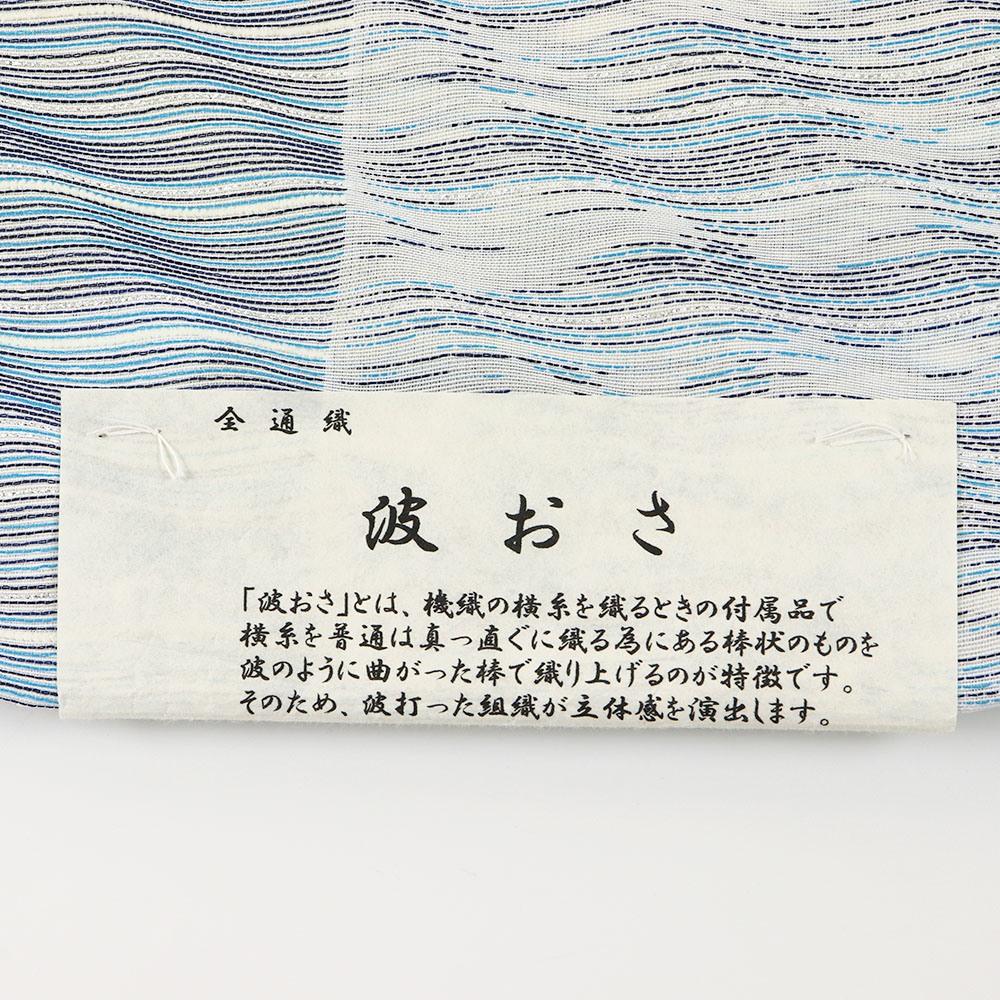 全通織
波おさ
「波おさ」とは、機織の横糸を織るときの付属品で
横糸を普通は真っ直ぐに織る為にある棒状のものを
波のように曲がった棒で織り上げるのが特徴です。
そのため、波打った組織が立体感を演出します。